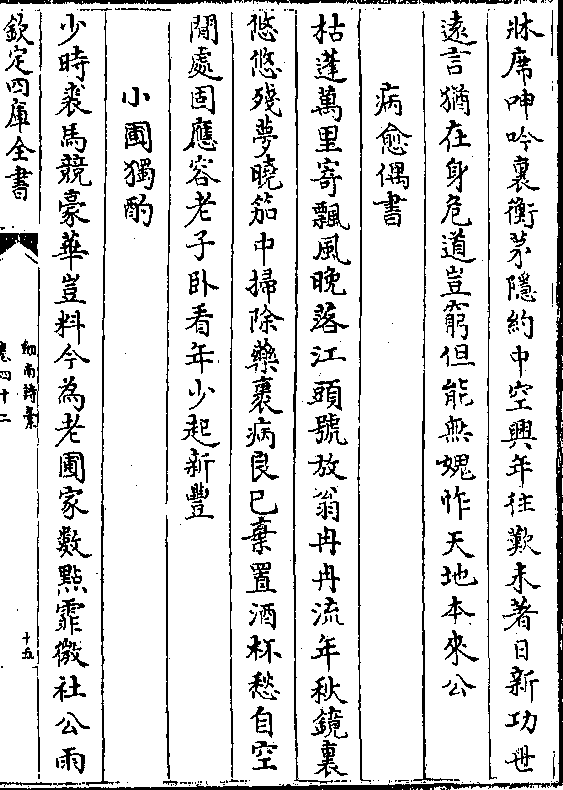 牀席呻吟裏衡茅隱約中空興年往歎未著日新功世
遠言猶在身危道豈窮但能無媿怍天地本來公
病愈偶書
枯蓬萬里寄飄風晚落江頭號放翁冉冉流年秋鏡裏
悠悠殘夢曉笳中掃除藥裹病良已棄置酒杯愁自空
閒處固應容老子卧看年少起新豐
小圃獨酌
少時裘馬競豪華豈料今為老圃家數點霏微社公雨
欽定四庫全書
劒南詩藁
卷四十二
十五